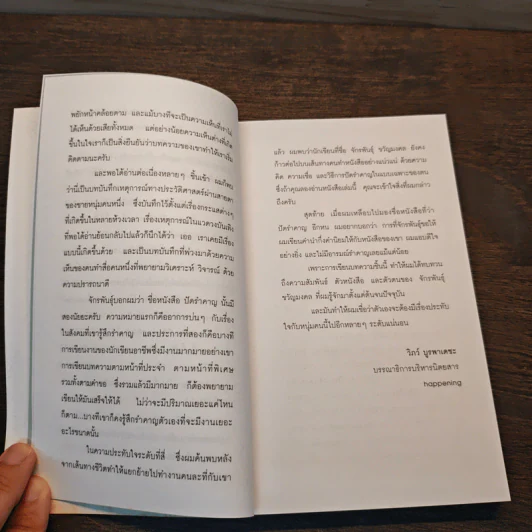 พยักหน้าคล้อยตาม และแม้บางทีจะเป็นความเห็นที่เราไม่
ได้เห็นด้วยเสียทั้งหมด แต่อย่างน้อยความเห็นต่างที่เกิด
ขึ้นในใจเราก็เป็นสิ่งยืนยันว่าบทความของเขาทำให้เราเริ่ม
คิดตามนะครับ
และพอได้อ่านต่อเนื่องหลายๆ ชิ้นเข้า ผมก็พบ
ว่านี่เป็นบทบันทึกเหตุการณ์ทางประวัติศาสตร์ผ่านสายตา
ของชายหนุ่มคนหนึ่ง ซึ่งบันทึกไว้ตั้งแต่เรื่องกระแสต่างๆ
ที่เกิดขึ้นในหลายห้วงเวลา เรื่องเหตุการณ์ในแวดวงบันเทิง
ที่พอได้อ่านย้อนกลับไปแล้วก็นึกได้ว่า เออ เราเคยมีเรื่อง
แบบนี้เกิดขึ้นด้วย และเป็นบทบันทึกที่พ่วงมาด้วยความ
เห็นของคนทำสื่อคนหนึ่งที่พยายามวิเคราะห์ วิจารณ์ ด้วย
ความปรารถนาดี
จักรพันธุ์บอกผมว่า ชื่อหนังสือ ปัดรำคาญ นั้นมี
สองนัยยะครับ ความหมายแรกก็คืออาการบ่นๆ กับเรื่อง
ในสังคมที่เขารู้สึกรำคาญ และประการที่สองก็คือบางที
การเขียนงานของนักเขียนอาชีพซึ่งมีงานมากมายอย่างเขา
การเขียนบทความตามหน้าที่ประจำ ตามหน้าที่พิเศษ
รวมทั้งตามคำขอ ซึ่งรวมแล้วมีมากมาย ก็ต้องพยายาม
เขียนให้มันเสร็จให้ได้ ไม่ว่าจะมีปริมาณเยอะแค่ไหน
ก็ตาม...บางทีเขาก็คงรู้สึกรำคาญตัวเองที่จะมีงานเยอะ
อะไรขนาดนั้น
ในความประทับใจระดับที่สี่ ซึ่งผมค้นพบหลัง
จากเดินทางชีวิตทำให้แยกย้ายไปทำงานคนละที่กับเขา
แล้ว ผมพบว่านักเขียนที่ชื่อ จักรพันธุ์ ขวัญมงคล ยังคง
ก้าวต่อไปบนเส้นทางคนทำหนังสืออย่างแน่วแน่ ด้วยความ
คิด ความเชื่อ และวิธีการปัดรำคาญในแบบเฉพาะของตน
ซึ่งถ้าคุณลองอ่านหนังสือเล่มนี้ คุณจะเข้าใจสิ่งที่ผมกล่าว
ถึงครับ
สุดท้าย เมื่อผมเหลือบไปมองชื่อหนังสือที่ว่า
ปัดรำคาญ อีกหน ผมอยากบอกว่า การที่จักรพันธุ์ขอให้
ผมเขียนคำนำกึ่งคำนิยมให้กับหนังสือของเขา ผมแอบดีใจ
อย่างยิ่ง และไม่มีอารมณ์รำคาญเลยแม้แต่น้อย
เพราะการเขียนบทความชิ้นนี้ ทำให้ผมได้ทบทวน
ถึงความสัมพันธ์ ตัวหนังสือ และตัวตนของ จักรพันธุ์
ขวัญมงคล ที่ผมรู้จักมาตั้งแต่ต้นจนปัจจุบัน
และมันทำให้ผมเชื่อว่าตัวเองจะต้องมีเรื่องประทับ
ใจกับหนุ่มคนนี้ไปอีกหลายๆ ระดับแน่นอน
วิภว์ บูรพาเดชะ
บรรณาธิการบริหารนิตยสาร
happening